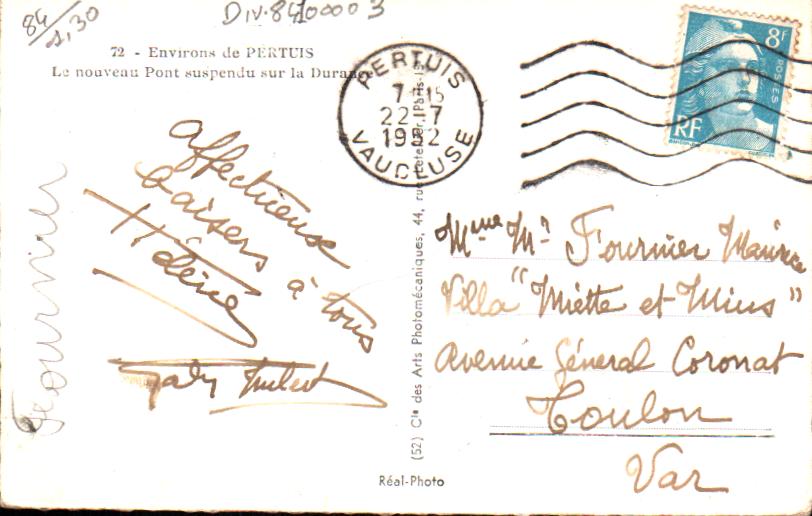 84/1,30
Div. 8410000 3
72 - Environs de PERTUIS
Le nouveau Pont suspendu sur la Durance
PERTUIS
7-15
22-7
1952
VAUCLUSE
8F
POSTES
RF
affectueuse
baisers à tous
Hélène
Gaby Imbert
Fournier
(52) Cie des Arts Photomécaniques, 44, rue Letellier, Paris-15
Mme Mr Fournier Maurice
Villa "Miette et Mius"
Avenue Général Coronat
Toulon
Var
Réal-Photo